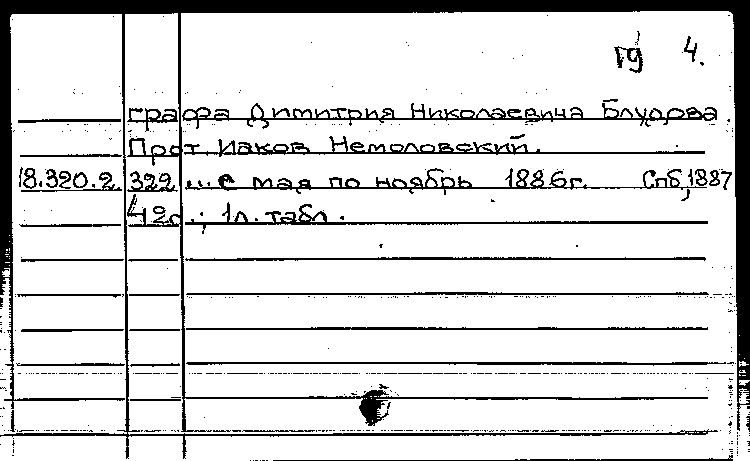 гд 4.
графа Димитрия Николаевича Блудова.
Прот. Иаков Немоловский.
18.320.2.322 ...с мая по ноябрь 1886г. Спб, 1887
42с.; 1л. табл.